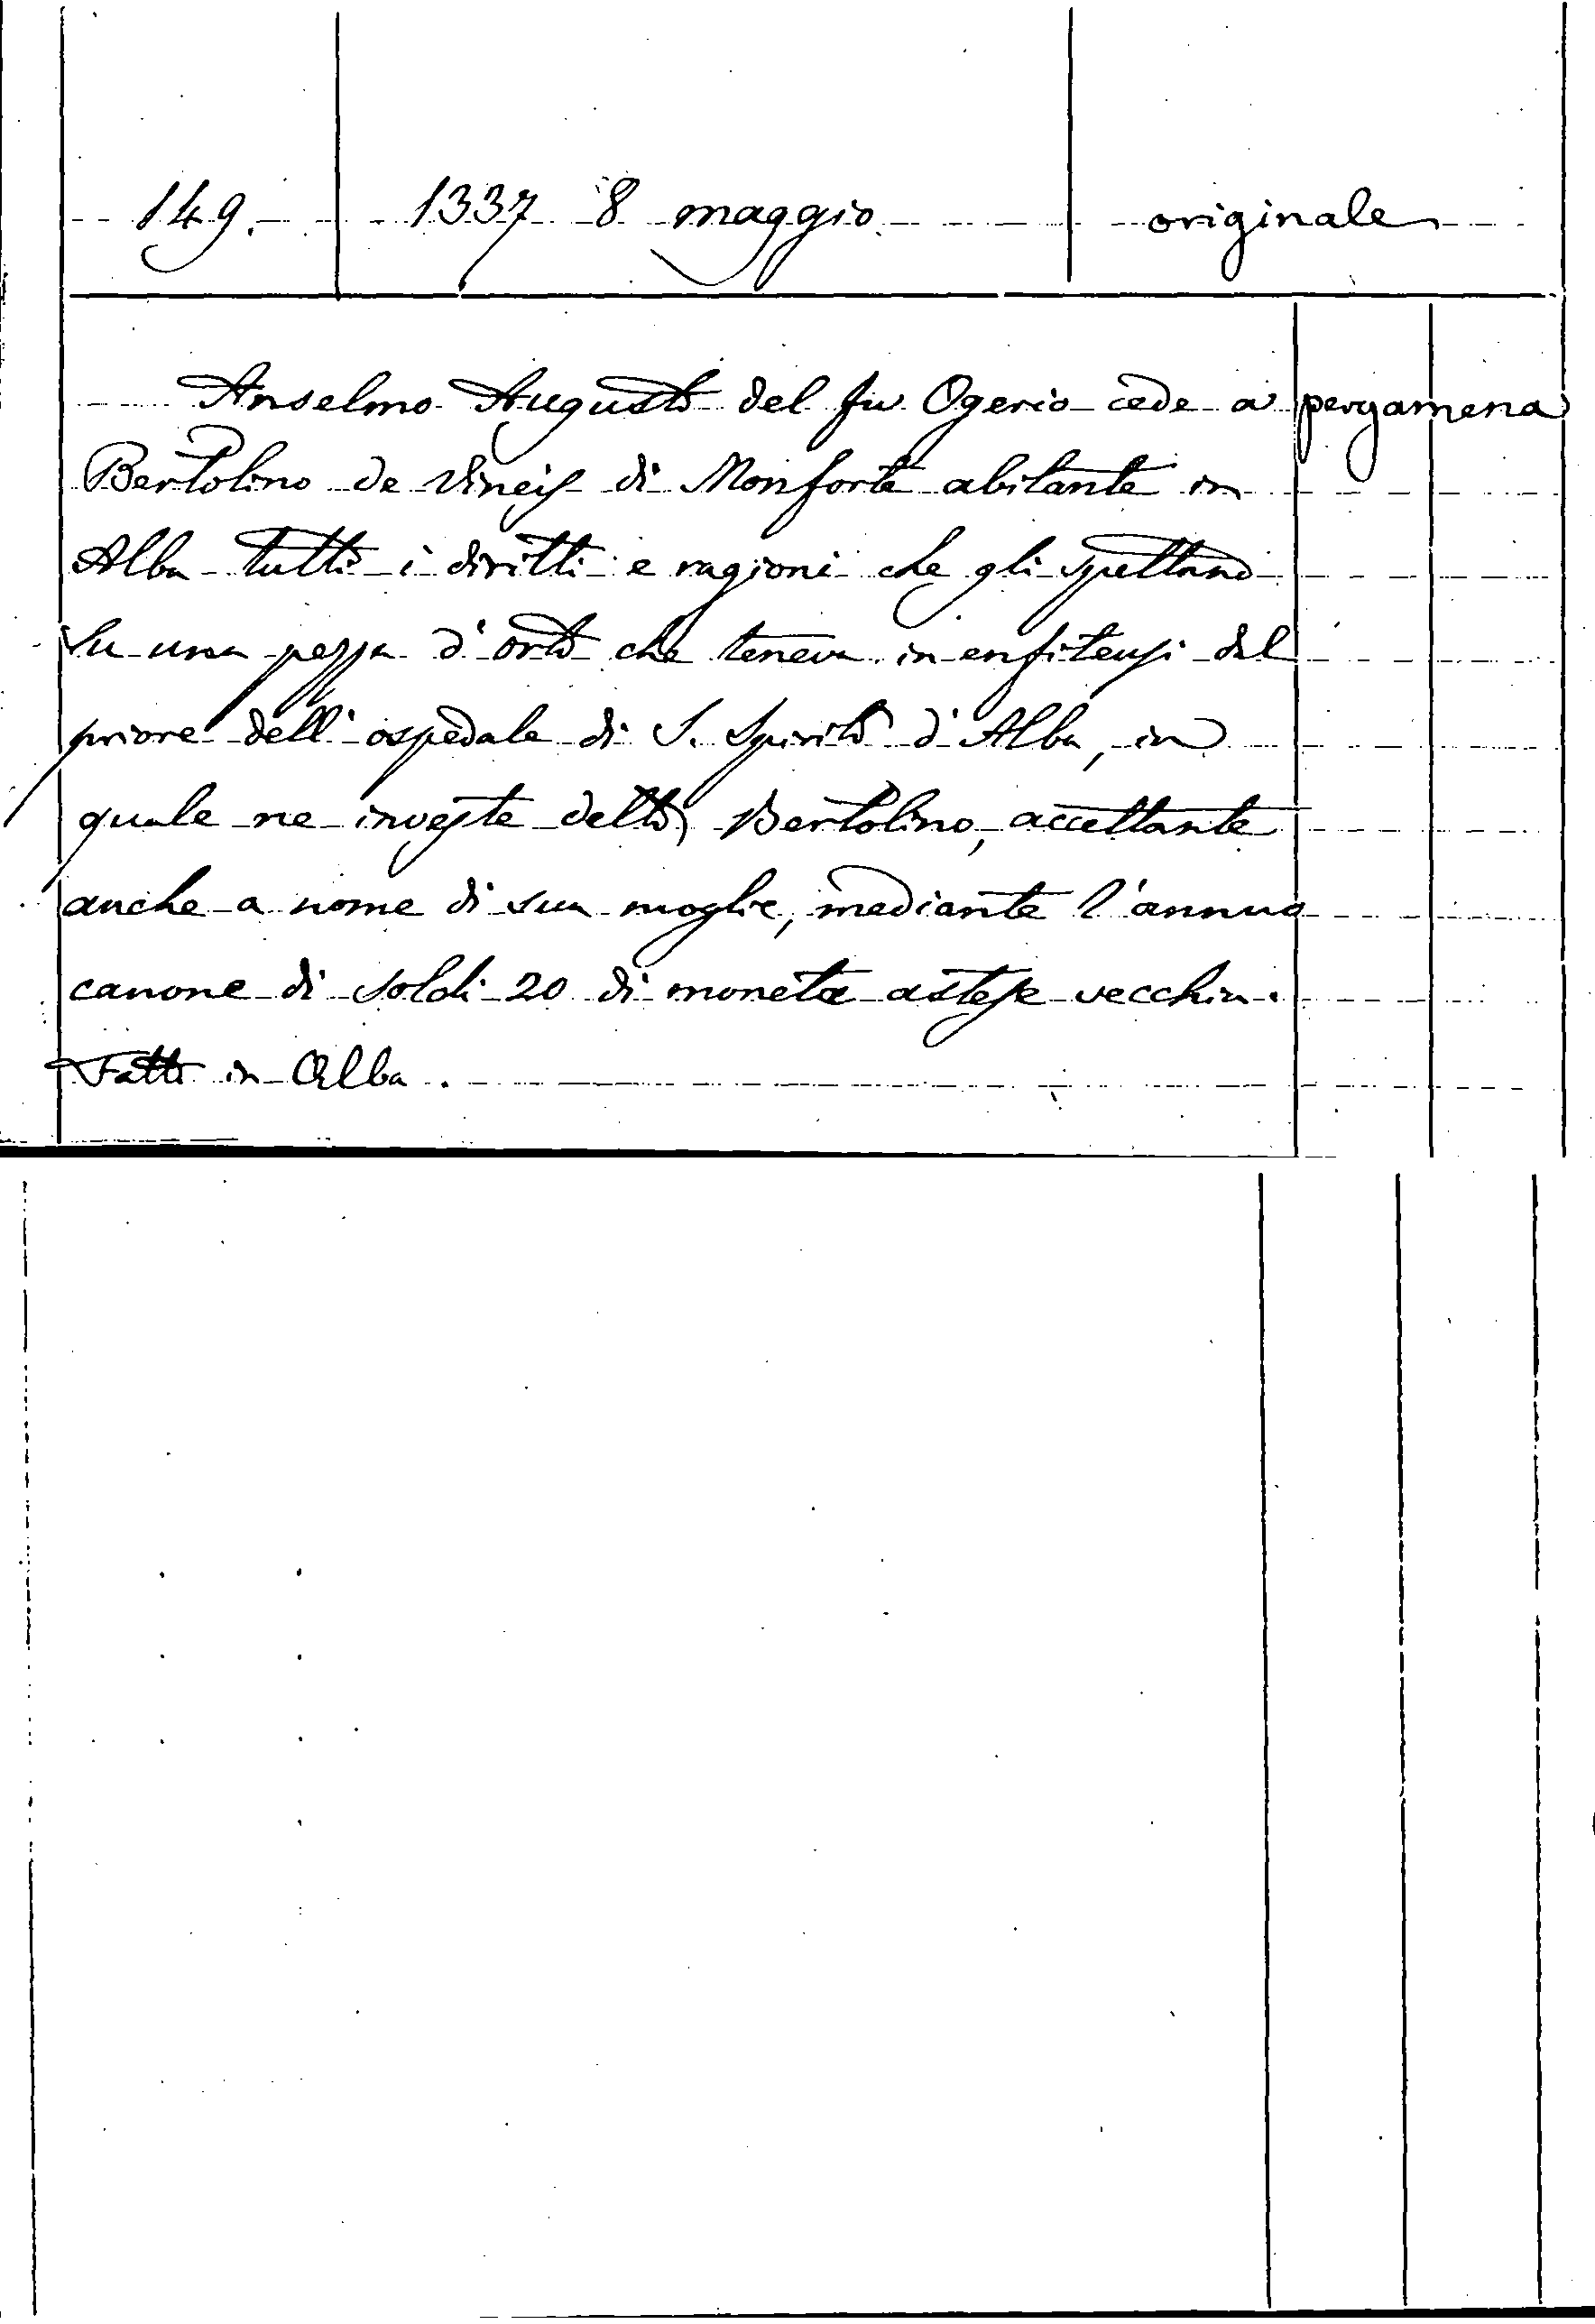 149. 1337 8 maggio originale
Anselmo Augusto del fu Ogerio cede a pergamena
Bertolino de Vineis di Monforte abitante in
Alba tutti i diritti e ragioni che gli spettano
su una pezza d'orto che teneva in enfiteusi dal
priore dell'ospedale di S. Spirito d'Alba, in
quale ne investe detto Bertolino, accettante
anche a nome di sua moglie, mediante l'annuo
canone di soldi 20 di moneta astese vecchia.
Fatto in Alba.